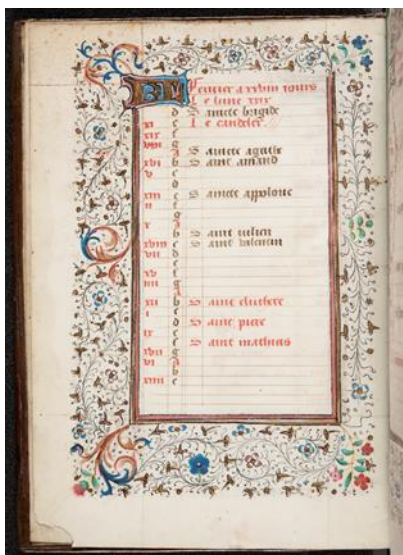 KL Feurier a xxviii iours
Le lune xxix
d Saincte brigide
xi e Le candeler
xix f
viii g
A Saincte agathe
xvi b Saint amand
v c
d
xiii e Saincte appolone
ii f
g
x A
b Saint iulien
xviii c Saint valentin
vii d
e
xv f
iiii g
A
xii b Saint eluthere
i c
d Saint piere
ix e
f Saint mathias
xvii g
vi A
b
xiiii c